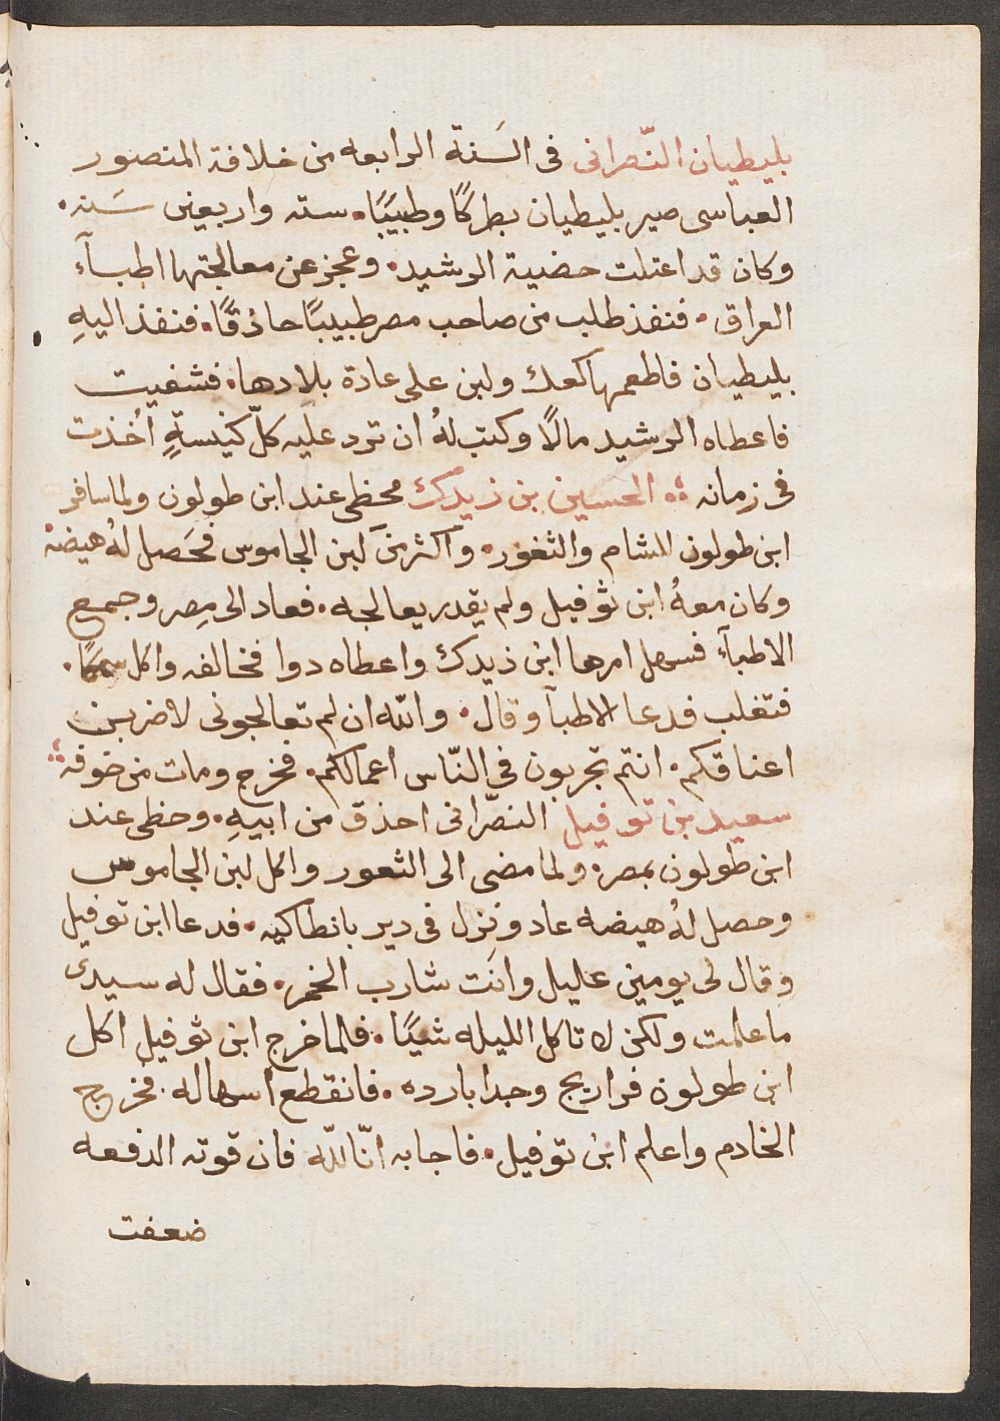 بليطيان النّصرانى فى السَنة الرابعه من خلافة المنصور
العباسى صير بليطيان بطركًا وطبيبًا. سته واربعين سَنه.
وكان قد اعتلت حضية الرشيد. وعجز عن معالجتها اطبآء
العراق. فنفذ طلب من صاحب مصر طبيبًا حاذقًا. فنفذ اليهِ
بليطيان فاطعمها كعك ولبن على عادة بلادها. فشفيت
فاعطاه الرشيد مالًا وكتب لهُ ان ترد عليه كلّ كنيسةٍ اُخذت
فى زمانه الحسين بن زيدك محظى عند ابن طولون ولما سافر
ابن طولون للشام والثغور. واكثر من لبن الجاموس فحَصل لهُ هيضه
وكان معهُ ابن ثوفيل ولم يقدر يعالجه. فعاد الى مِصر وجمع
الاطبآء فسهل امرها ابن زيدك واعطاه دوا فخالفه واكل سمكًا.
فتغلب فدعا الاطبآ وقال. والله ان لم تعالجونى لاضربن
اعناقكم. انتم تجربون فى النّاس اعمالكم. فخرج ومات من خوفه
سعيد بن توفيل النصّرانى احذق من ابيهِ. وحظى عند
ابن طولون بمصر. ولما مضى الى الثعور واكل لبن الجاموس
وحصل لهُ هيضه عاد ونزل فى دير بانطاكيه. فدعا ابن توفيل
وقال لى يومين عليل وانت شارب الخمر. فقال له سيدى
ما علمت ولكن لا تاكل الليله شيًا. فلما خرج ابن ثوفيل اكل
ابن طولون فراريج وجدا بارده. فانقطع اسهاله. فخرج
الخادم واعلم ابن توفيل. فاجابه انّا لله فان قوته الدفعه
ضعفت